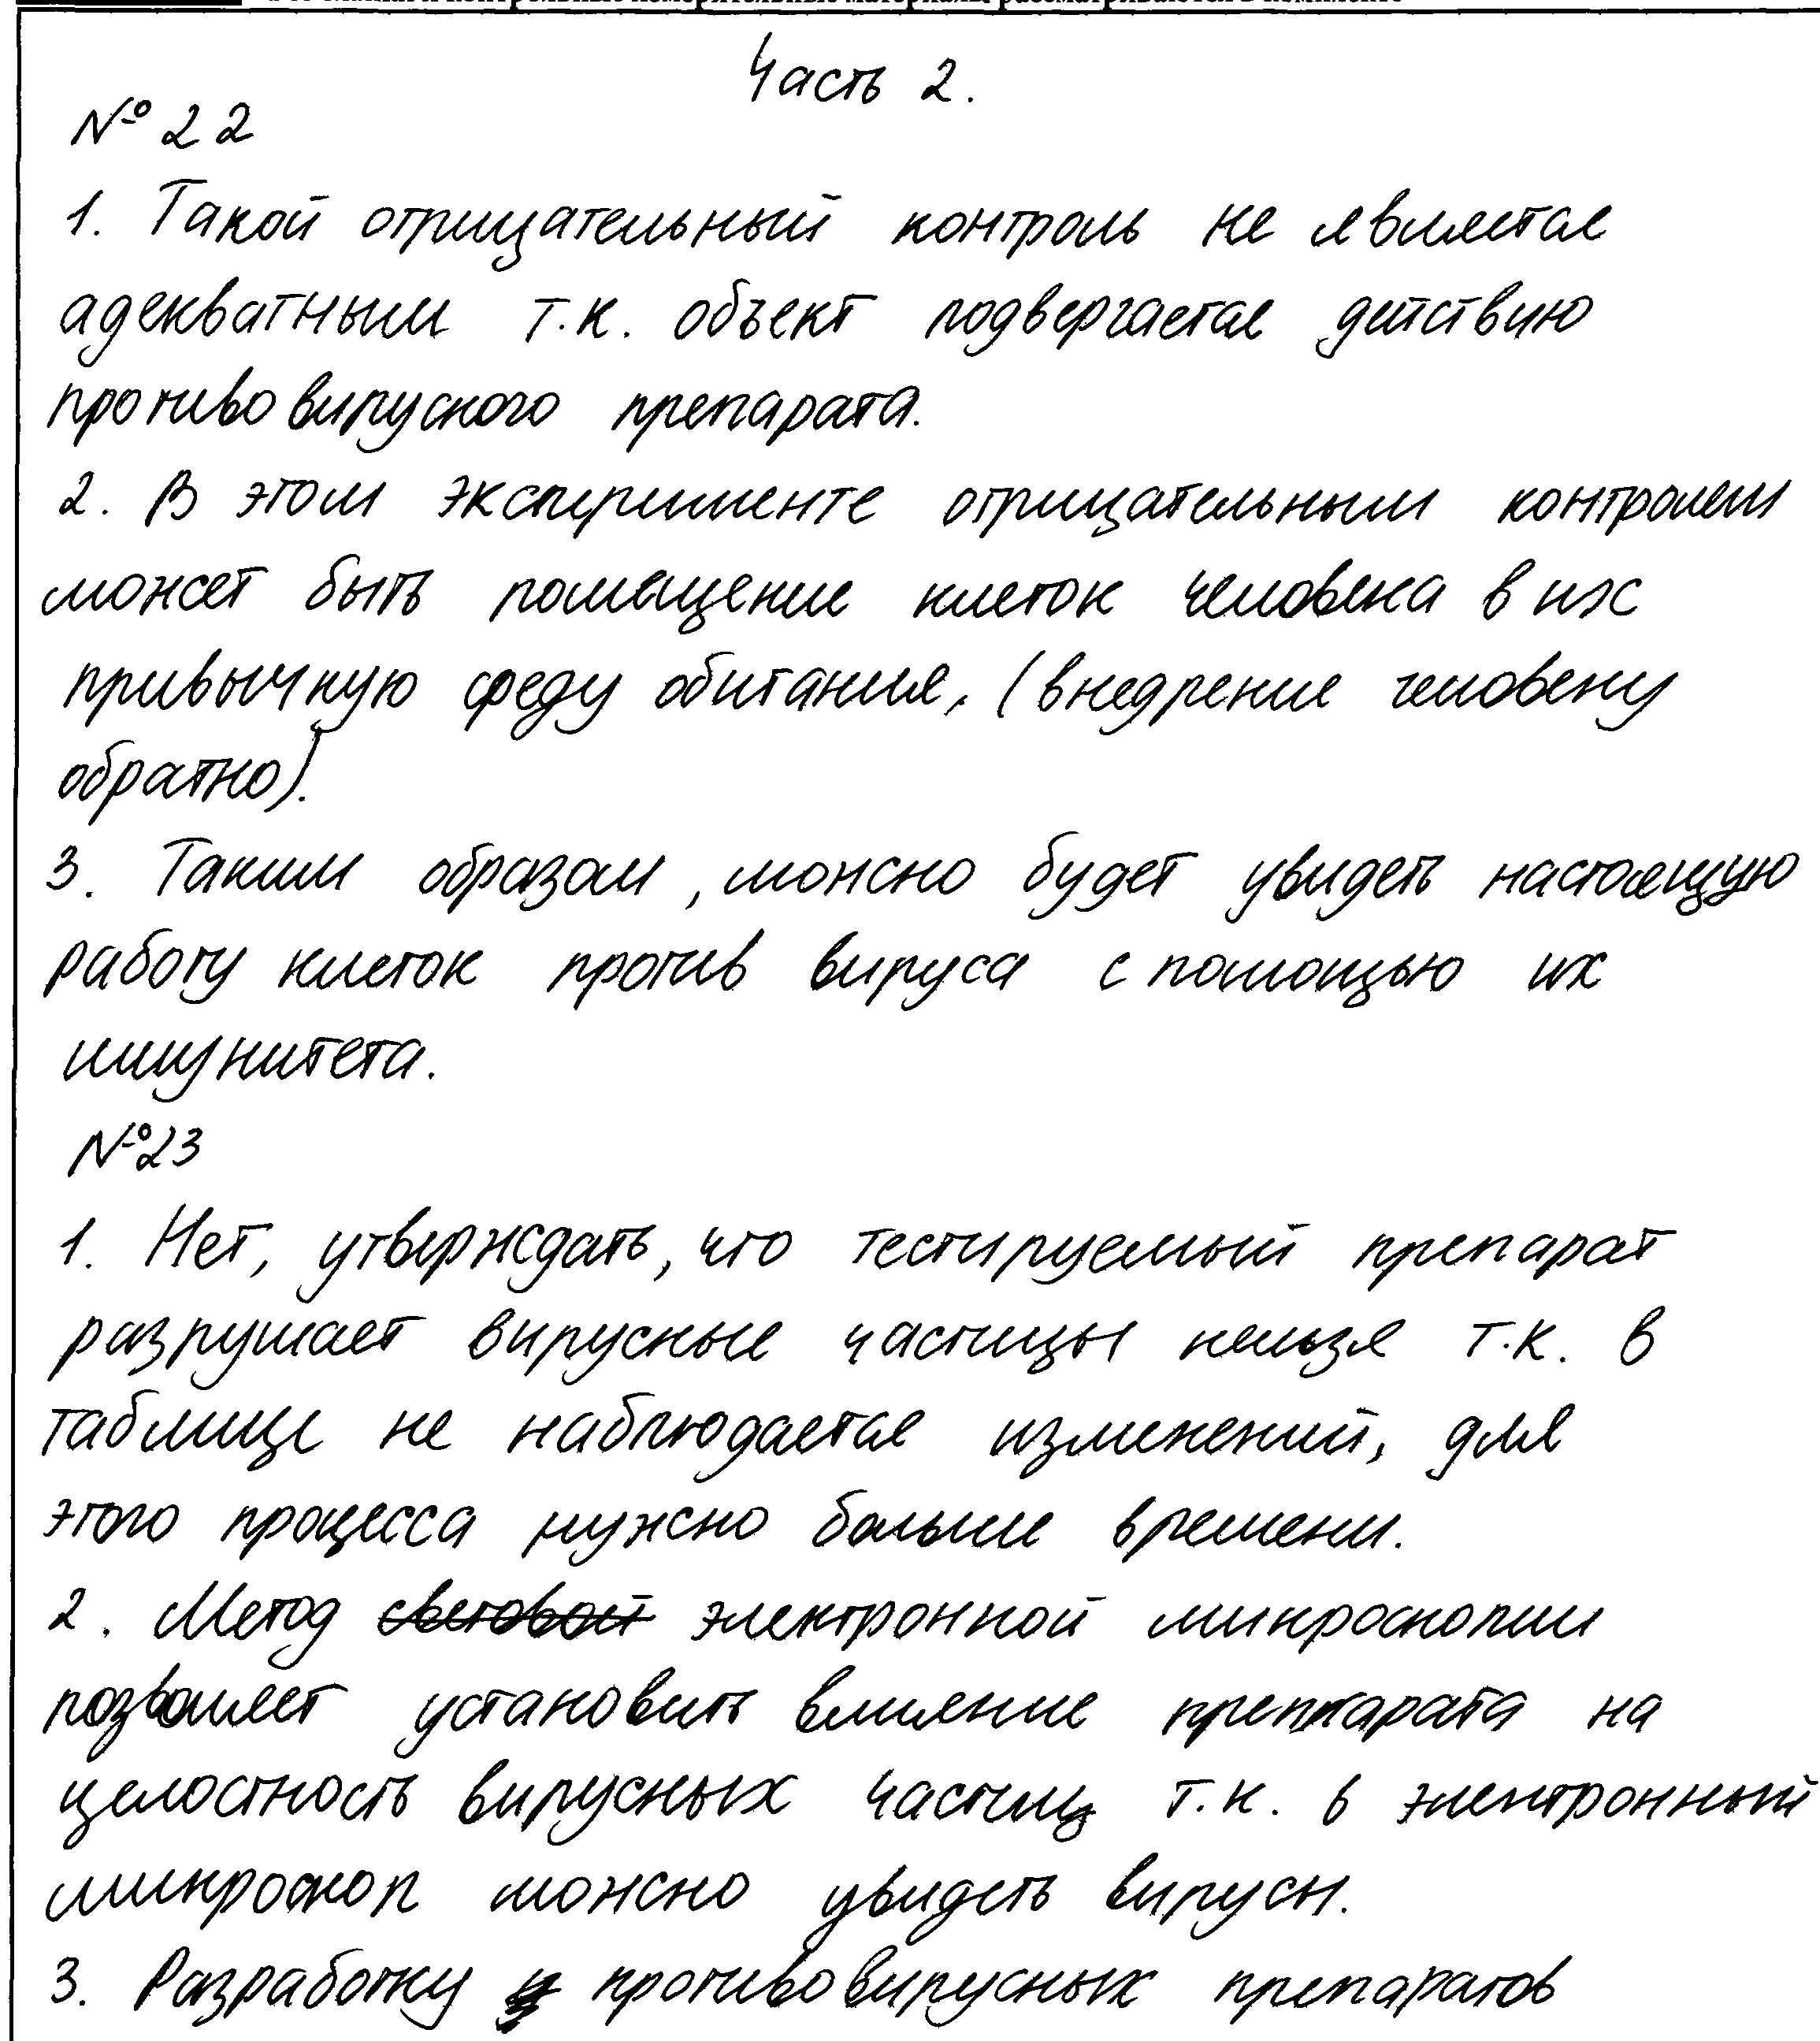 Часть 2.
№ 22
1. Такой отрицательный контроль не является
адекватным т.к. объект подвергается действию
противовирусного препарата.
2. В этом эксперименте отрицательным контролем
может быть помещение клеток человека в их
привычную среду обитания, (внедрение человеку
обратно).
3. Таким образом, можно будет увидеть настоящую
работу клеток против вируса с помощью их
имунитета.
№23
1. Нет, утверждать, что тестируемый препарат
разрушает вирусные частицы нельзя т.к. в
таблице не наблюдается изменений, для
этого процесса нужно больше времени.
2. Метод световой электронной микроскопии
позволяет установить влияние препарата на
целостность вирусных частиц т.к. в электронный
микроскоп можно увидеть вирусы.
3. Разработку противовирусных препаратов